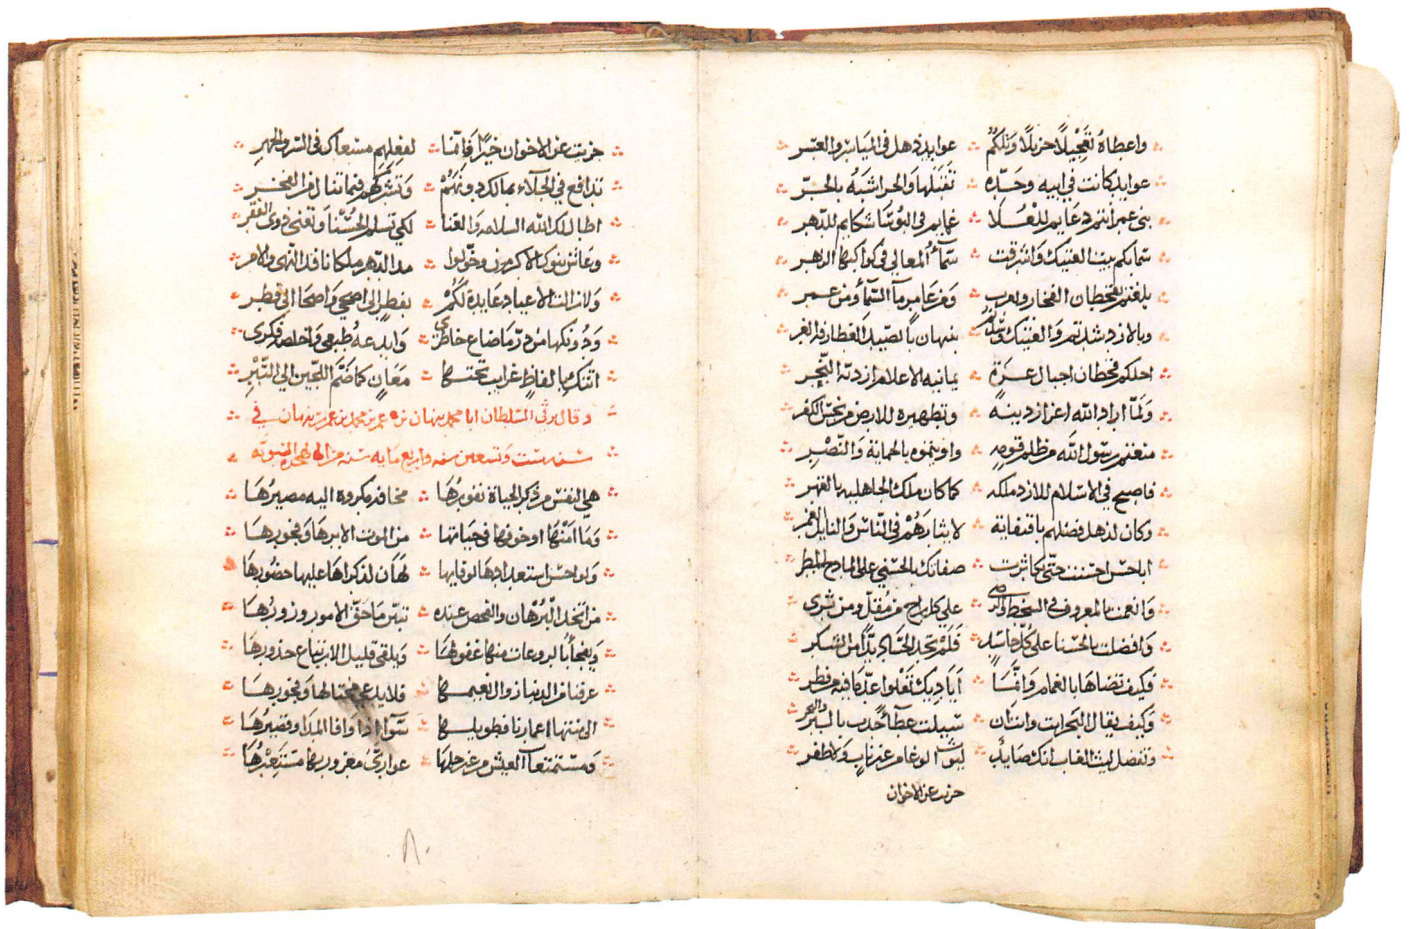 واعطاه تجيلا جزيلا وتلكم عوايد ذهل في المياسر والعسر
عوايد كانت في ابيه وجده تقبلها والحر اشبه بالحر
بني عمر انتم دعايم للعلا غمايم في البؤسا شكايم للدهر
سمابكم بيت العتيك واشرقت سماء المعالي في كواكبها الزهر
بلغتم لقحطان الفخار ويعرب ومن عامر ماء السماء ومن عمر
وبالازد شدتم والعتيك نبهان بالصيد الغطارفة الغر
احلكم قحطان اجبال عزة يمانية الاعلام ازدية النجر
ولما اراد الله اعزاز دينه وتطهيره للارض من نجس الكفر
منعتم رسول الله من ظلم قومه واويتموه بالحماية والنصر
فاصبح في الاسلام للازد ملكه كما كان ملك الجاهلية بالقهر
وكان لذهل فضلهم باقتفايه لايثارهم في الناس والنايل الغمر
اباحسن احسنت حتى تكاثرت صفاتك بالحسنى على المادح المطر
وانعمت بالمعروف في السخط والرضى على كل راج من مقل ومن مثرى
وافضلت بالحسنا على كل حاسد فلم يجد الحساد بدا من الشكر
فكيف تضاها بالغمام وانما اياديك تعلوا عدها فيه من قطر
وكيف يقال البحر انت وانتما سبيلت عطاء حدب بالبر والبحر
وتفضل ليث الغاب انك صايد ليوث الوغا من غير ناب ولا ظفر
حزيت عن الاخوان
حزيت عن الاخوان خيرا فانما لفعلهم مسعاك في السر والجهر
تدافع في الجلاء بمالك دونهم وتشركهم فيما تنال من الفخر
اطال لك الله السلامة والغنا لكي تسلم الحسنا وتغني ذوى الفقر
وعاش بنوك الاكرمون وخولوا مدا الدهر ملكا نافذ النهى والامر
ولا زالت الاعياد عايدة لكم بفطر الى اضحى واضحا الى فطر
ودونكها من در ما ضاع خاطري وابدعه طبعي واخلصه فكرى
اتتك بالفاظ غرايب تحتها معان كما ضم اللجين الى التبر
وقال يرثي السلطان ابا محمد نبهان بن عمر بن محمد بن عمر بن نبهان في
سنة ست وتسعين سنة واربع مايه سنة من الهجرة النبوية
هي النفس من ذكر الحياة نفورها مخافة مكروه اليه مصيرها
وما امنها او خوفها في حياتها من الموت الا برها وفجورها
ولو احسن استعدادها لوفاتها لهان لذكراها عليها حضورها
من اتخذ البرهان والفحص عنده تبين ما حق الامور وزورها
ويفجأ بالروعات منها غفولها ويلقى قليل الارتياع حذورها
عرفنا من الدنيا زوال نعيمها فلا يدعي مختالها وفخورها
الى منتها اعمارنا فطويلها سواء اذا وافا المدا وقصيرها
ومستمتعا العيش من غير حلها عواري مغرور بها مستعيرها